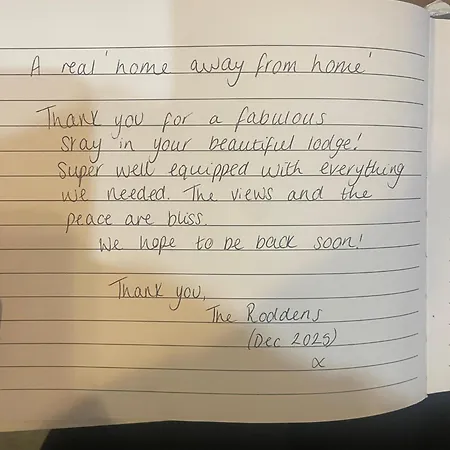 A real 'home away from home'
Thank you for a fabulous
stay in your beautiful lodge!
Super well equipped with everything
we needed. The views and the
peace are bliss.
We hope to be back soon!
Thank you,
The Roddens
(Dec 2025)
x